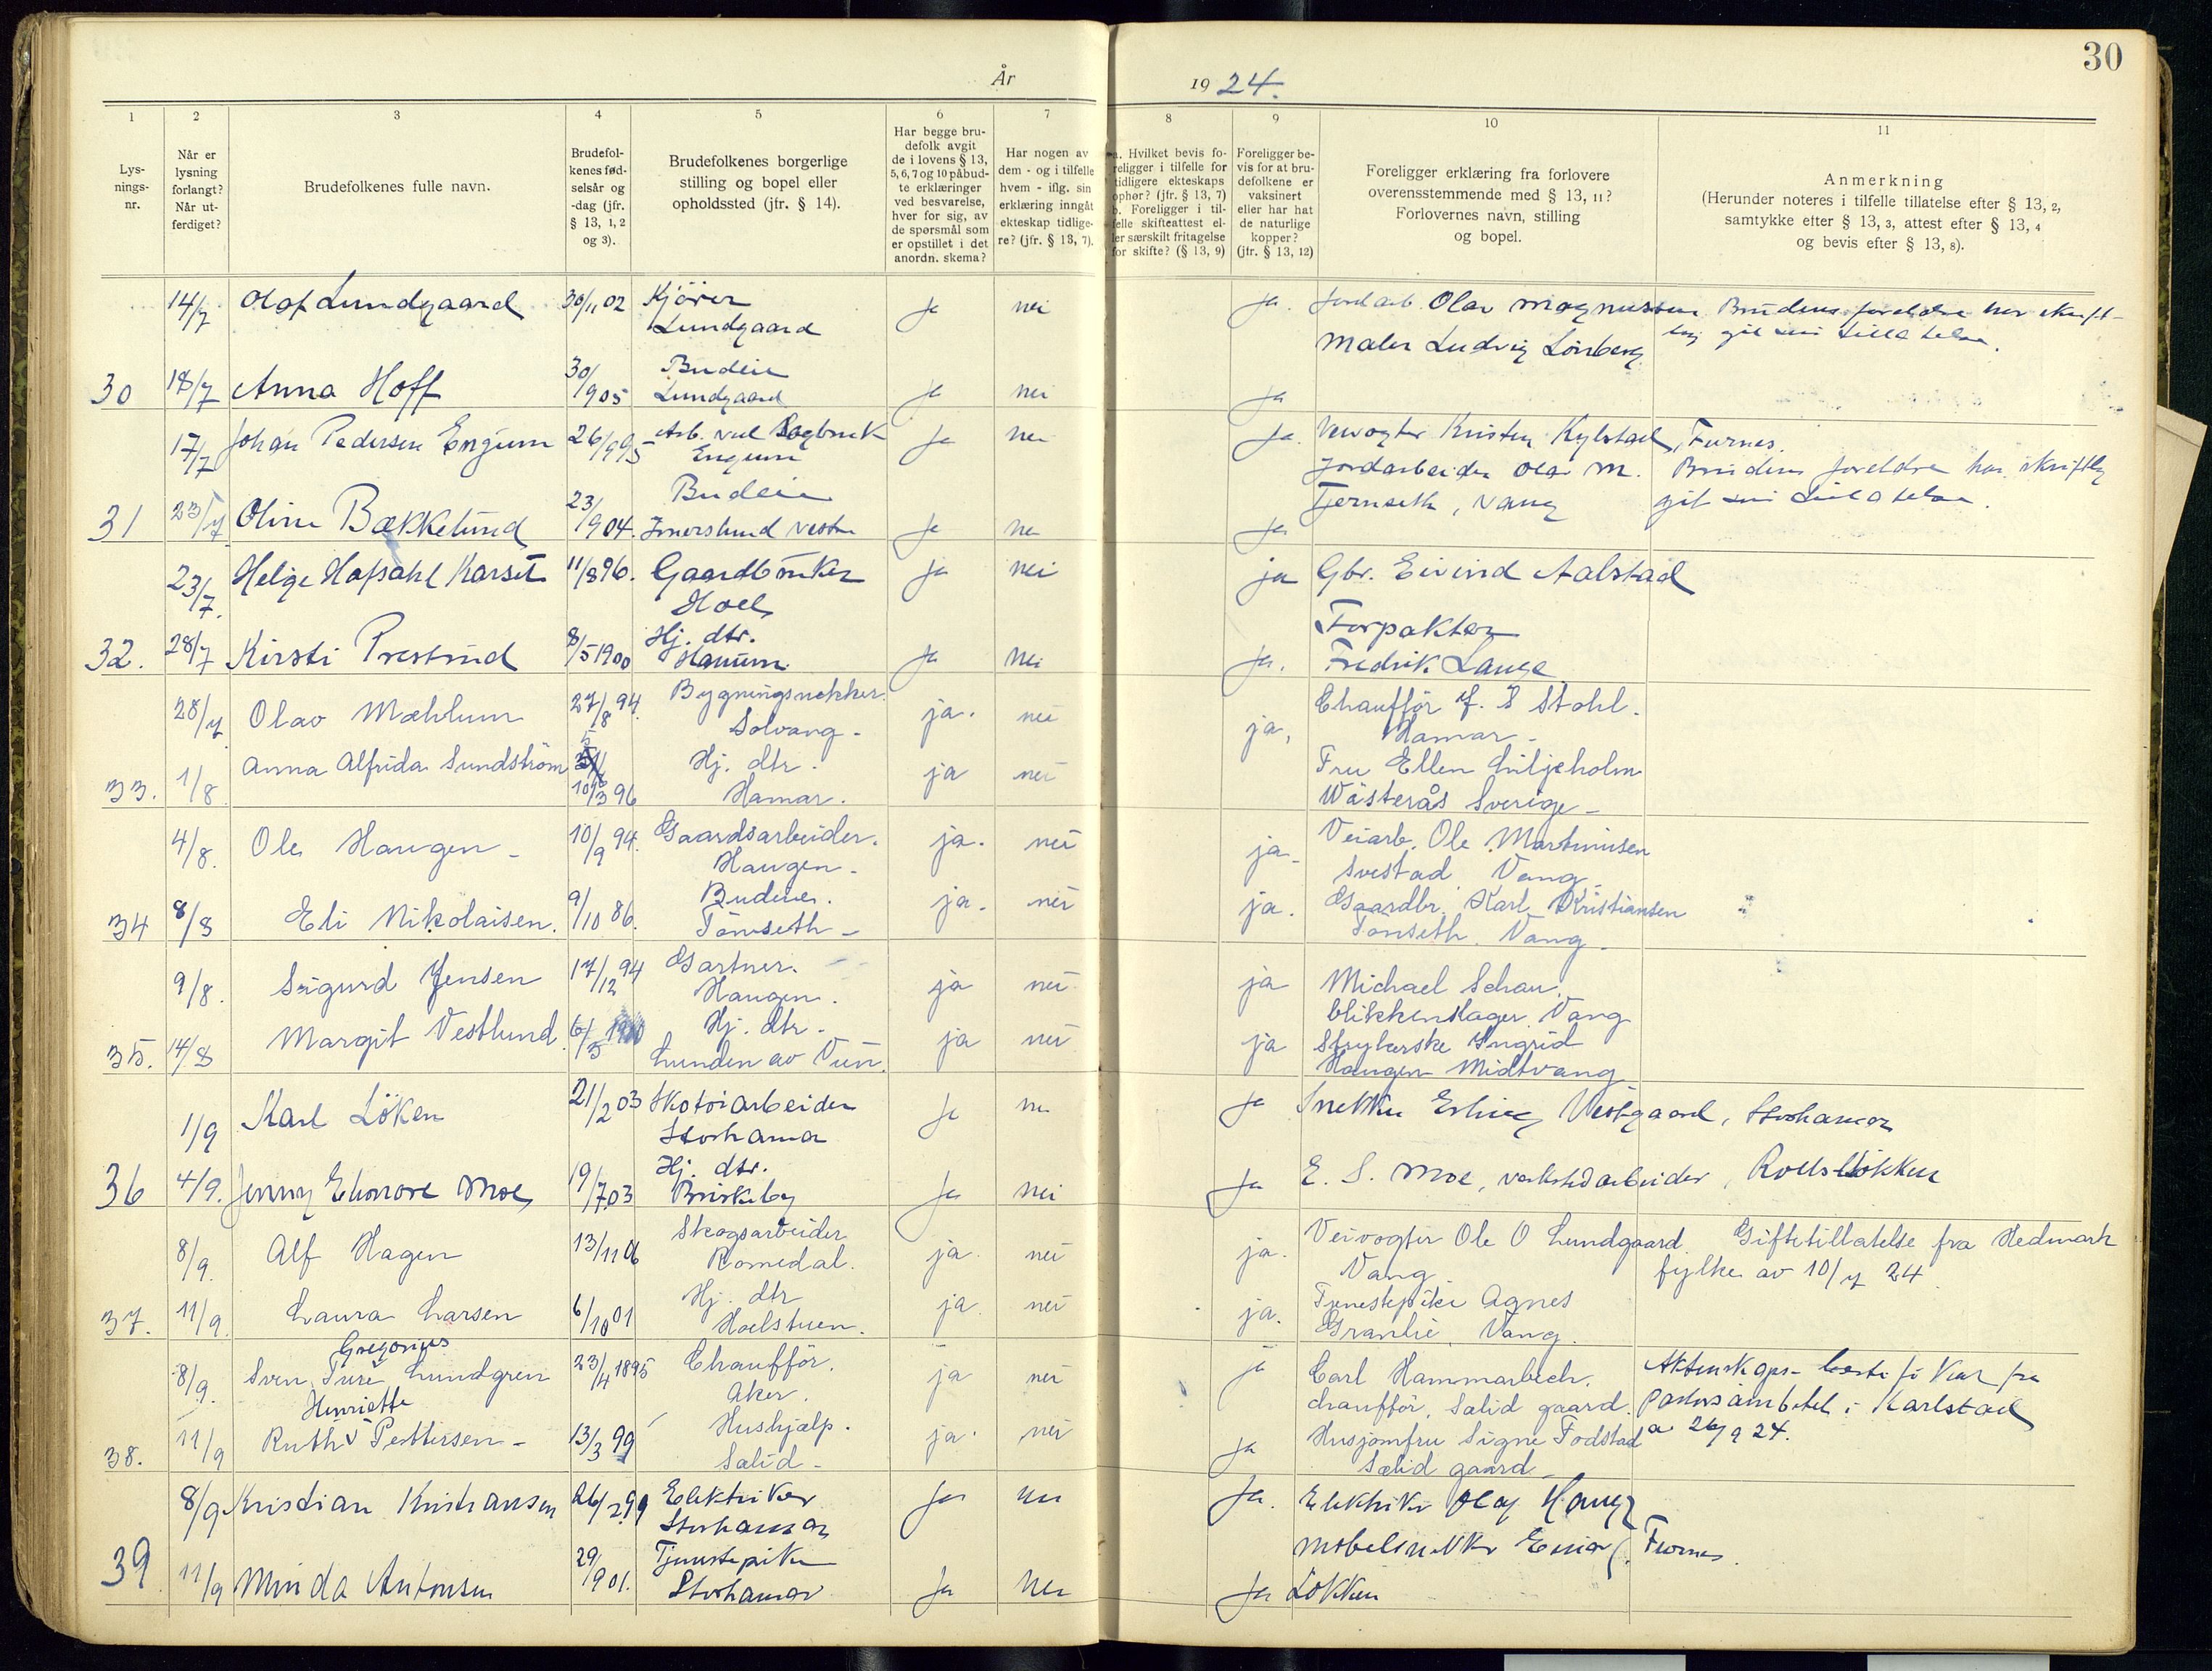 30
År 1924.
1 2 3 4 5 6 7 8 9 10 11
Lys-
nings-
nr.
Når er
lysning
forlangt?
Når ut-
ferdiget?
Brudefolkenes fulle navn.
Brudefol-
kenes fød-
selsår og
-dag (jfr.
§ 13, 1, 2
og 3).
Brudefolkenes borgerlige
stilling og bopel eller
opholdssted (jfr. § 14).
Har begge bru-
defolk avgit
de i lovens § 13,
5, 6, 7 og 10 påbud-
te erklæringer
ved besvarelse,
hver for sig, av
de spørsmål som
er opstillet i det
anordn. skema?
Har nogen av
dem - og i tilfelle
hvem - iflg. sin
erklæring inngåt
ekteskap tidlige-
re? (jfr. § 13, 7).
a. Hvilket bevis fo-
religger i tilfelle for
tidligere ekteskaps
ophør? (jfr. § 13, 7)
b. Foreligger i til-
felle skifteattest el-
ler særskilt fritagelse
for skifte? (§ 13, 9)
Foreligger be-
vis for at bru-
defolkene er
vaksinert
eller har hat
de naturlige
kopper?
(jfr. § 13, 12)
Foreligger erklæring fra forlovere
overensstemmende med § 13, 11?
Forlovernes navn, stilling
og bopel.
Anmerkning
(Herunder noteres i tilfelle tillatelse efter § 13, 2,
samtykke efter § 13, 3, attest efter § 13, 4
og bevis efter § 13, 8).
14/7 Olaf Lundgaard 30/11 02 Kjörer
Lundgaard
ja nei ja. Jordarb. Olav Magnussen
Maler Ludvig Lönberg
Brudens foreldre har skrift-
lig git sin tillatelse.
30 18/7 Anna Hoff 30/9 05 Budeie
Lundgaard
ja nei ja
17/7 Johan Pedersen Engum 26/9 95 Arb. ved Sagbruk
Engum
ja nei ja. Veivogter Kristen Kylstad, Furnes.
Jordarbeider Olav M.
Tjernseth, Vang
Brudens foreldre har skriftlig
git sin tillatelse.
31 23/7 Oline Bækkelund 23/9 04. Budeie
Imerslund vestre
ja nei ja
23/7. Helge Hafsahl Karset 11/8 96. Gaardbruker
Hoel
ja nei ja Gbr. Eivind Aalstad
32. 28/7 Kirsti Prestrud 8/5 1900 Hj. dtr.
Hanum.
ja nei ja. Forpakter
Fredrik Lange
28/7 Olav Mæhlum 27/8 94. Bygningssnekker
Solvang-
ja. nei ja, Chaufför J. S Stohl.
Hamar-
33. 1/8. Anna Alfrida Sundström 10/3 96 Hj. dtr.
Hamar.
ja nei Fru Ellen Liljeholm
Wästerås Sverige-
4/8. Ole Haugen- 10/9 94. Gaardsarbeider.
Haugen-
ja. nei ja- Veiarb. Ole Martinusen
Svestad Vang-
34 8/8 Eli Nikolaisen. 9/10 86. Budeie.
Tönseth-
ja. nei ja. Gaardbr. Karl Kristiansen
Tönseth. Vang.
9/8. Sigurd Jensen 17/12 94 Gartner.
Haugen.
ja nei ja Michael Schau.
blikkenslager Vang
35. 14/8 Margit Vestlund. 6/5 Hj. dtr.
Lunden av Vien.
ja nei ja Strykerske Ingrid
Haugen Midtvang
1/9 Karl Löken 21/2 03 Skotöiarbeider
Storhamar
ja nei ja Snekker Erling Vestgaard, Storhamar
36 4/9. Jenny Elionore Moe 19/7.03 Hj. dtr.
Briskeby
ja nei ja E. S. Moe, verkstedarbeider, Roelslökken
8/9. Alf Hagen 13/11 06 Skogsarbeider
Romedal.
ja. nei ja. Veivogter Ole O Lundgaard.
Vang
Giftetillatelse fra Hedmark
fylke av 10/7 24
37. 11/9. Laura Larsen 6/10 01 Hj. dtr
Hoelstuen.
ja. nei ja. Tjenestepike Agnes
Granlie, Vang.
8/9. Gregorius
Sven Ture Lundgren 23/4 1895 Chaufför.
Aker.
ja nei ja Carl Hammarbech.
chaufför, Salid gaard.
Pastorsämbetet i Karlstad
a 26/9 24.
38. 11/9 Henriette
Ruth v Pettersen- 13/3 99 Hushjælp.
Salid-
ja. nei ja Husjomfru Signe Fodstad
Sælid gaard-
8/9 Kristian Kristiansen 26/2 99 Elektriker
Storhamar
ja nei ja. Elektriker Olaf Haug
39 11/9 Minda Antonsen 29/9 01. Tjenestepike
Storhamar
ja nei ja Møbelsnekker Einar
Løkken
Furnes.